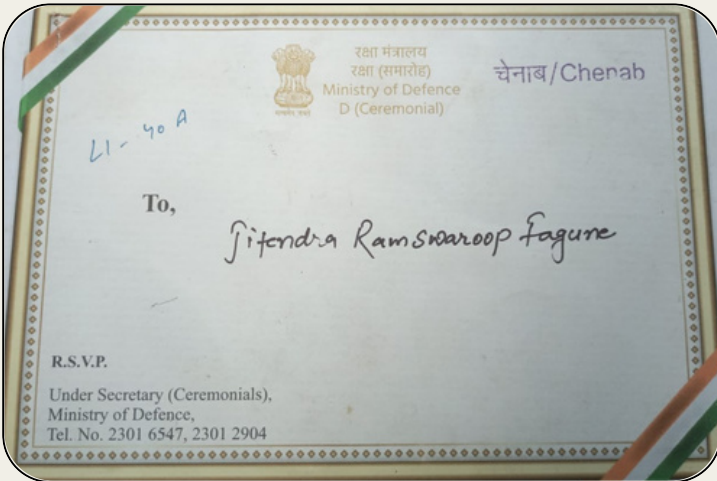 रक्षा मंत्रालय
रक्षा (समारोह)
Ministry of Defence
D (Ceremonial)
चेनाब/Chenab
L1 - 40 A
To,
Jitendra Ramswaroop Fagune
R.S.V.P.
Under Secretary (Ceremonials),
Ministry of Defence,
Tel. No. 2301 6547, 2301 2904